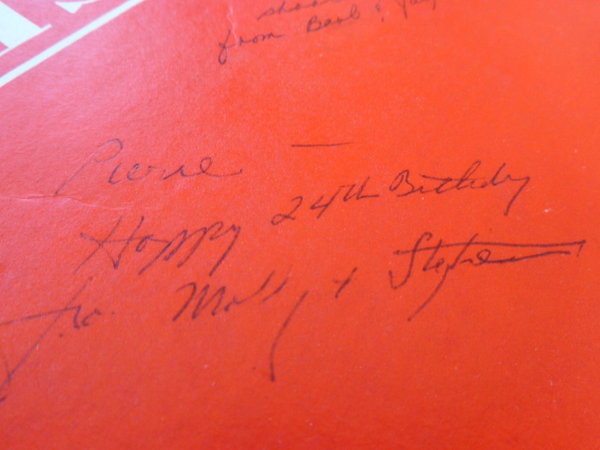 from Barb &
Pierre —
Happy 24th Birthday
fr. Molly + Stephen